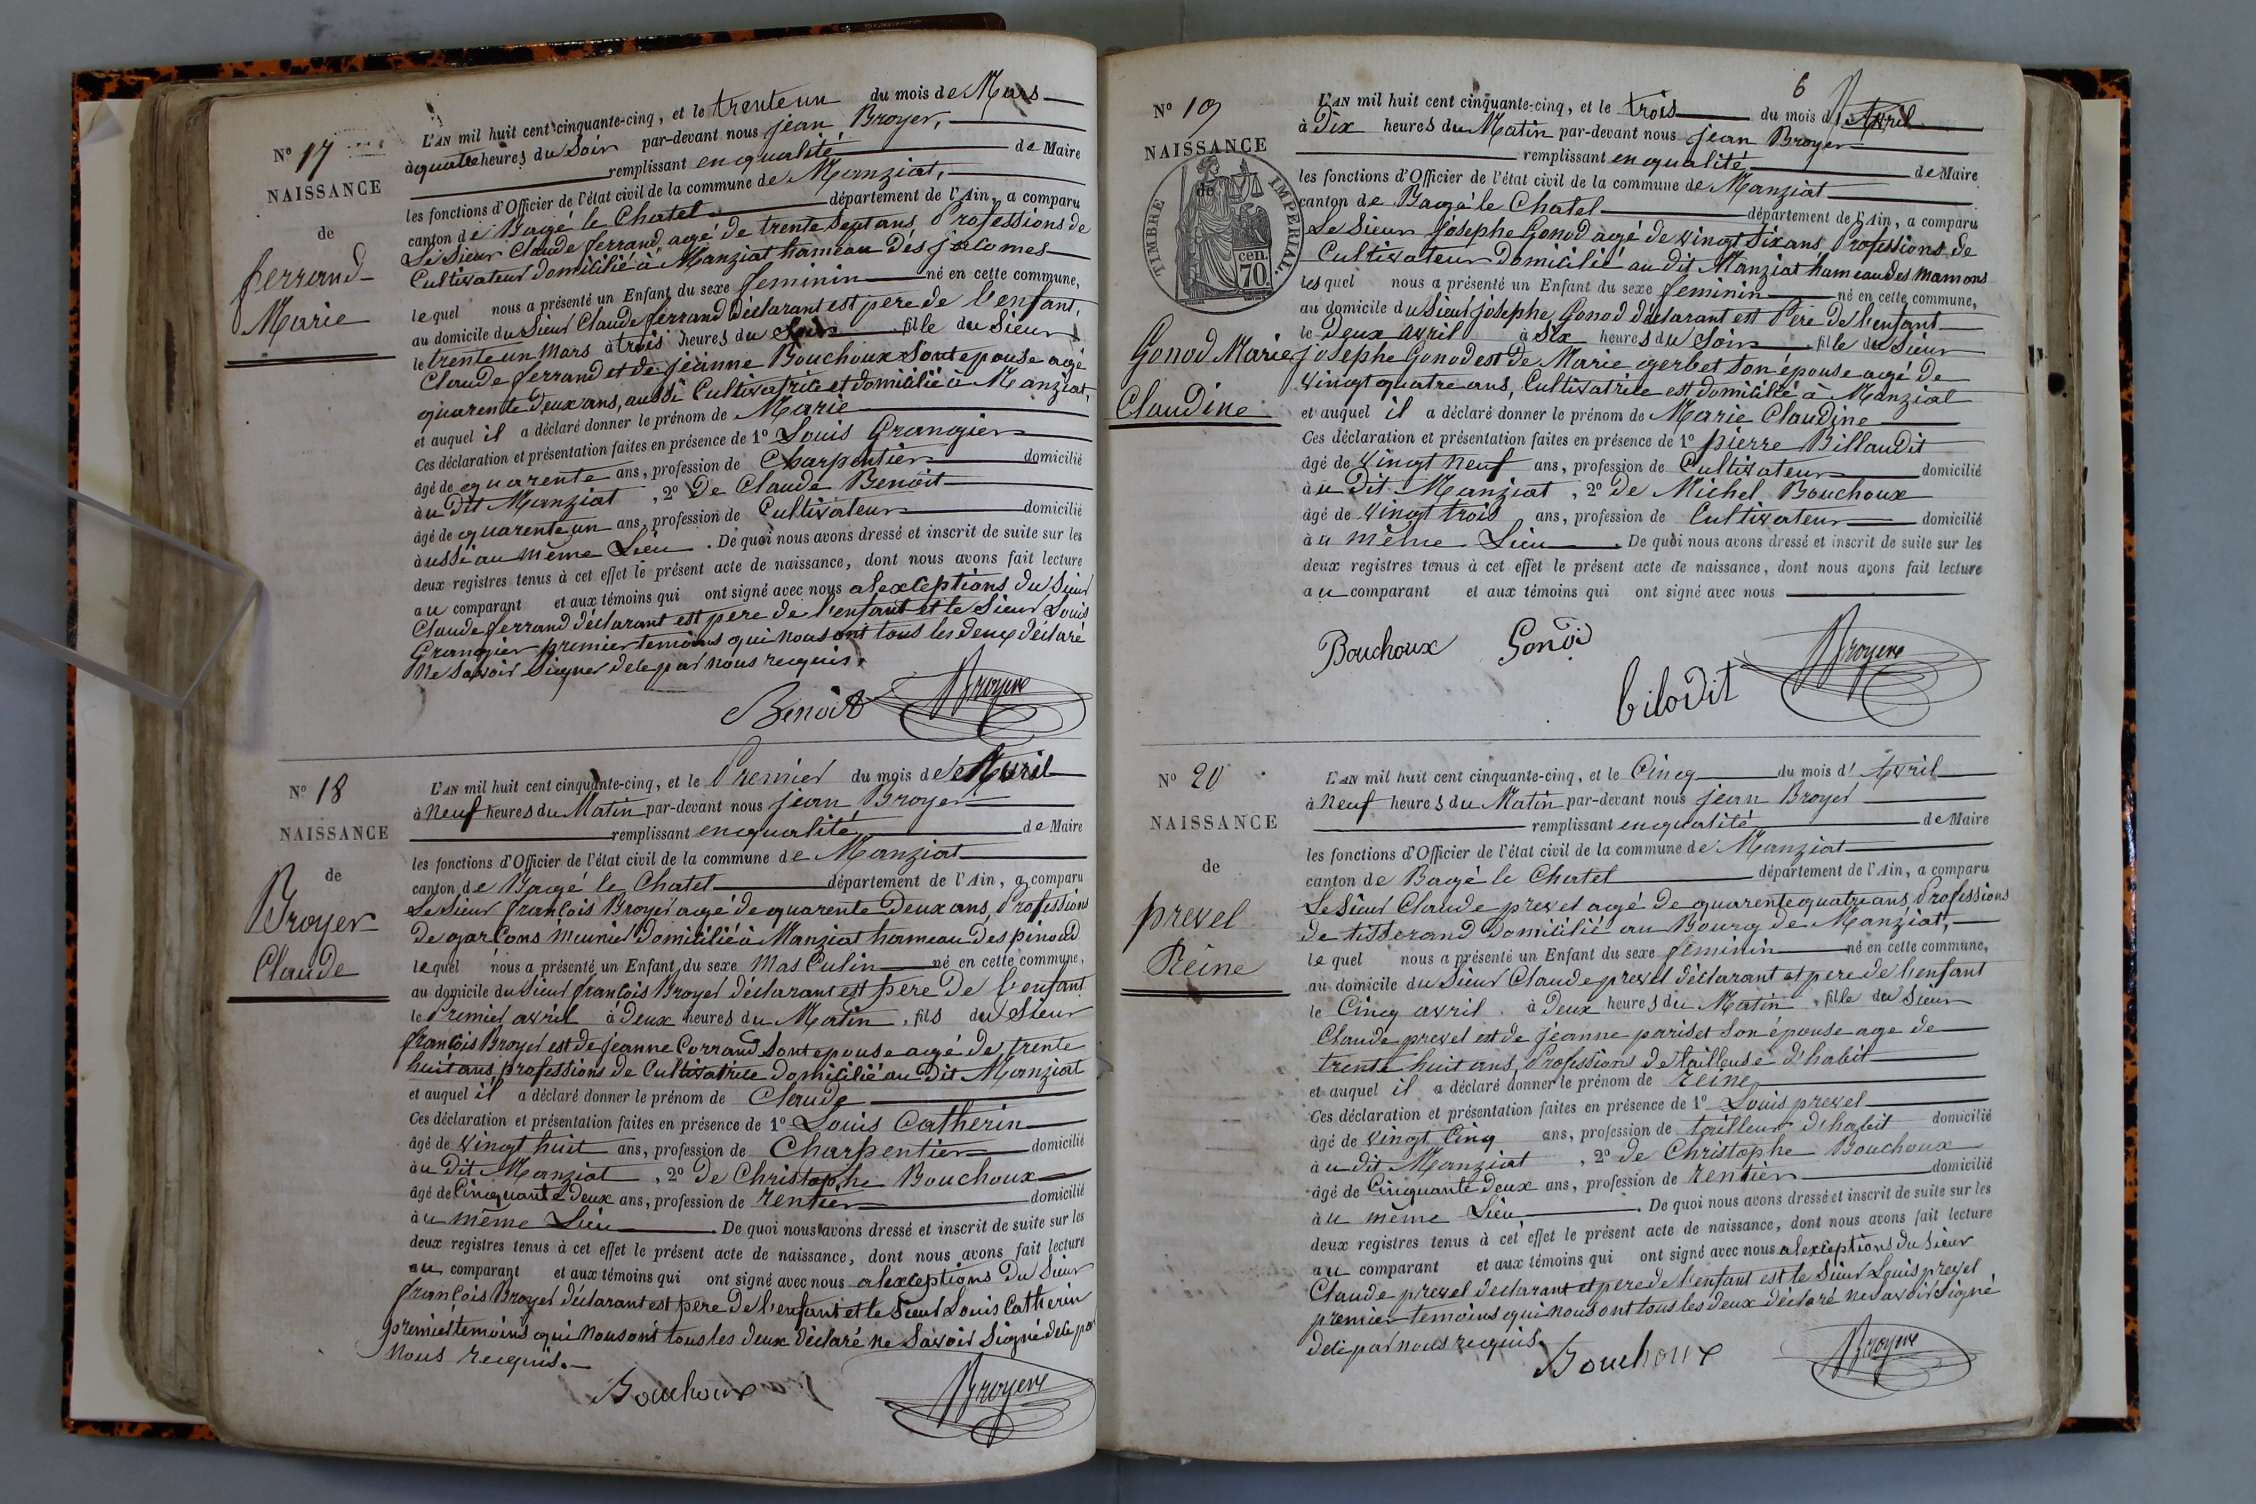 N° 17
NAISSANCE
de
ferrand
Marie
L'AN mil huit cent cinquante-cinq, et le trente un du mois de Mars
à quatre heures du Soir par-devant nous jean Broyer,
remplissant en qualité de Maire
les fonctions d'Officier de l'état civil de la commune de Manziat,
canton de Bagé le Chatel département de l'Ain, a comparu
Le Sieur Claude ferrand, agé de trente Sept ans, Professions de
Cultivateur domicilié à Manziat hameau des jalomes
lequel nous a présenté un Enfant du sexe feminin né en cette commune,
au domicile du Sieur Claude ferrand déclarant est pere de l'enfant,
le trente un Mars à trois heures du Soir fille du Sieur
Claude ferrand et de jeanne Bouchoux Sont epouse agé
quarente deux ans, aussi Cultivatrice et domicilié à Manziat,
et auquel il a déclaré donner le prénom de Marie
Ces déclaration et présentation faites en présence de 1° Louis Grangier
âgé de quarente ans, profession de Charpentier domicilié
au dit Manziat, 2° De Claude Benoit
âgé de quarente un ans, profession de Cultivateur domicilié
aussi au même Lieu. De quoi nous avons dressé et inscrit de suite sur les
deux registres tenus à cet effet le présent acte de naissance, dont nous avons fait lecture
au comparant et aux témoins qui ont signé avec nous alexceptions du Sieur
Claude ferrand déclarant est pere de l'enfant et le Sieur Louis
Grangier premier temoins qui nous ont tous les deux déclaré
ne Savoir Signer de le par nous requis.
Benoit Broyer
N° 18
NAISSANCE
de
Broyer
Claude
L'AN mil huit cent cinquante-cinq, et le Premier du mois de Avril
à Neuf heures du Matin par-devant nous jean Broyer
remplissant en qualité de Maire
les fonctions d'Officier de l'état civil de la commune de Manziat
canton de Bagé le Chatel département de l'Ain, a comparu
Le Sieur françois Broyer agé de quarente Deux ans, Professions
De garçons Meunier Domicilié à Manziat hameau Des pinoud
lequel nous a présenté un Enfant du sexe Masculin né en cette commune,
au domicile du Sieur françois Broyer déclarant est pere De l'enfant
le Premier avril à Deux heures du Matin, fils du Sieur
françois Broyer est de Jeanne Corrand Sont epouse agé de trente
huit ans professions de Cultivatrice domicilié au Dit Manziat
et auquel il a déclaré donner le prénom de Claude
Ces déclaration et présentation faites en présence de 1° Louis Catherin
âgé de vingt huit ans, profession de Charpentier domicilié
au Dit Manziat, 2° De Christophe Bouchoux
âgé de Cinquante Deux ans, profession de rentier domicilié
au même Lieu De quoi nous avons dressé et inscrit de suite sur les
deux registres tenus à cet effet le présent acte de naissance, dont nous avons fait lecture
au comparant et aux témoins qui ont signé avec nous alexceptions Du Sieur
françois Broyer déclarant est pere De l'enfant et le Sieur Louis Catherin
premier temoins qui Nous ont tous les deux déclaré ne Savoir Signé de le par
Nous requis.
Bouchoux Broyer
6
N° 19
NAISSANCE
de
TIMBRE IMPERIAL
cen.
70.
Gonod Marie
Claudine
L'AN mil huit cent cinquante-cinq, et le trois du mois d'Avril
à Dix heures du Matin par-devant nous jean Broyer
remplissant en qualité de Maire
les fonctions d'Officier de l'état civil de la commune de Manziat
canton de Bagé le Chatel département de l'Ain, a comparu
Le Sieur Josephe Gonod agé de vingt Six ans, Professions de
Cultivateur Domicilié au dit Manziat hameau des mamons
lesquel nous a présenté un Enfant du sexe feminin né en cette commune,
au domicile du Sieur josephe Gonod déclarant est Pere De l'enfant
le Deux avril à Six heures du Soir fille du Sieur
josephe Gonod est De Marie gerbet Son épouse agé de
vingt quatre ans, Cultivatrice est domicilié à Manziat
et auquel il a déclaré donner le prénom de Marie Claudine
Ces déclaration et présentation faites en présence de 1° pierre Billaudit
âgé de vingt Neuf ans, profession de Cultivateur domicilié
au Dit Manziat, 2° De Michel Bouchoux
âgé de vingt trois ans, profession de Cultivateur domicilié
au même Lieu. De quoi nous avons dressé et inscrit de suite sur les
deux registres tenus à cet effet le présent acte de naissance, dont nous avons fait lecture
au comparant et aux témoins qui ont signé avec nous
Bouchoux Gonod bilodit Broyer
N° 20
NAISSANCE
de
prevel
Reine
L'AN mil huit cent cinquante-cinq, et le Cinq du mois d'Avril
à Neuf heures du Matin par-devant nous jean Broyer
remplissant en qualité de Maire
les fonctions d'Officier de l'état civil de la commune de Manziat
canton de Bagé le Chatel département de l'Ain, a comparu
Le Sieur Claude prevel agé de quarente quatre ans, Professions
de tisserand domicilié au Bourg de Manziat,
lequel nous a présenté un Enfant du sexe feminin né en cette commune,
au domicile du Sieur Claude prevel déclarant et pere de l'enfant
le Cinq avril à Deux heures du Matin, fille du Sieur
Claude prevel est de jeanne pariset Son épouse age de
trente huit ans, Professions de tailleuse d'habit
et auquel il a déclaré donner le prénom de reine
Ces déclaration et présentation faites en présence de 1° Louis prevel
âgé de vingt Cinq ans, profession de tailleur d'habit domicilié
au dit Manziat, 2° De Christophe Bouchoux
âgé de Cinquante Deux ans, profession de rentier domicilié
au même Lieu. De quoi nous avons dressé et inscrit de suite sur les
deux registres tenus à cet effet le présent acte de naissance, dont nous avons fait lecture
au comparant et aux témoins qui ont signé avec nous alexceptions du Sieur
Claude prevel declarant et pere de l'enfant est le Sieur Louis prevel
premier temoins qui nous ont tous les deux déclaré ne Savoir Signé
de le par nous requis.
Bouchoux Broyer